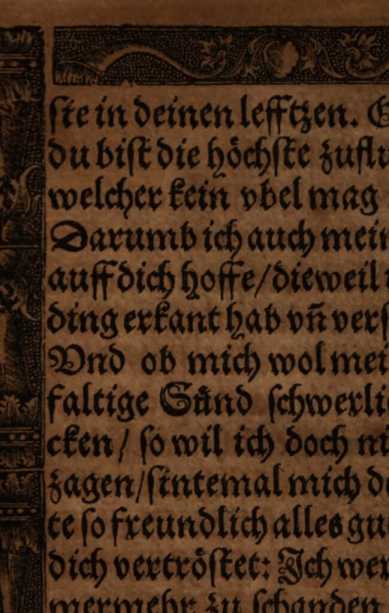 ſte in deinen lefftzen. G
du biſt die höchſte zuflu
welcher kein vbel mag
Darumb ich auch mein
auff dich hoffe/dieweil
ding erkant hab vn̄ verſ
Vnd ob mich wol mei
faltige Sünd ſchwerli
cken/ ſo wil ich doch ni
zagen/ſintemal mich d
te ſo freundlich alles gu
dich vertröſtet: Ich wer
mermehr zu ſchanden